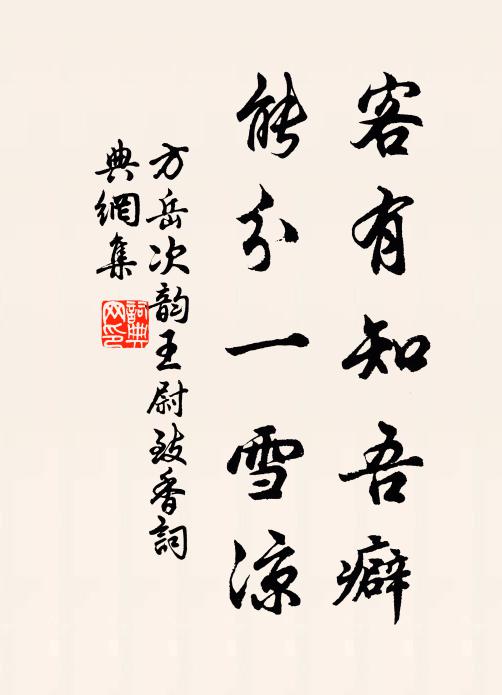 客有知吾癖
能分一雪凉
方岳次韵王尉致香詞
典網集
詞典
网印